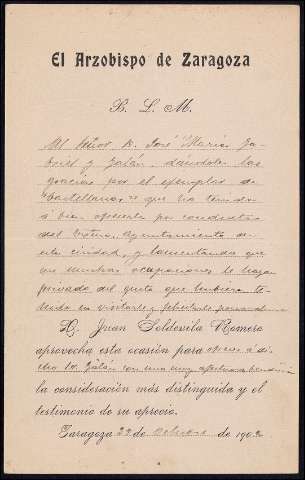 El Arzobispo de Zaragoza
B. L. M.
Al Señor D. José María Ga-
briel y Galán, dándole las
gracias por el ejemplar de
"Castellanas" que ha tenido
á bien ofrecerle por conducto
del Excmo. Ayuntamiento de
esta ciudad, y lamentando que
sus muchas ocupaciones le hayan
privado del gusto que hubiera te-
nido en visitarle y felicitarle personalmente
D. Juan Soldevila Romero
aprovecha esta ocasión para ofrecer á di-
cho Sr. Galán con una muy afectuosa bendición
la consideración más distinguida y el
testimonio de su aprecio.
Zaragoza 22 de Octubre de 1902